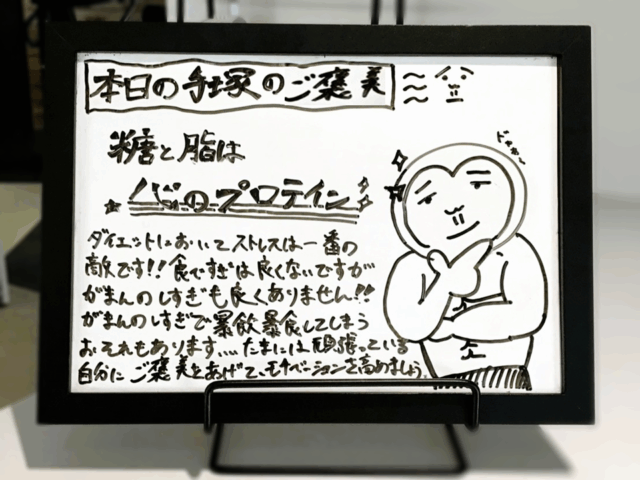 本日の手塚のご褒美
糖と脂は
心のプロテイン
ダイエットにおいてストレスは一番の
敵です!!食べすぎは良くないですが
がまんのしすぎも良くありません!!
がまんのしすぎで暴飲暴食してしまう
おそれもあります....たまには頑張っている
自分にご褒美をあげて、モチベーションを高めましょう。